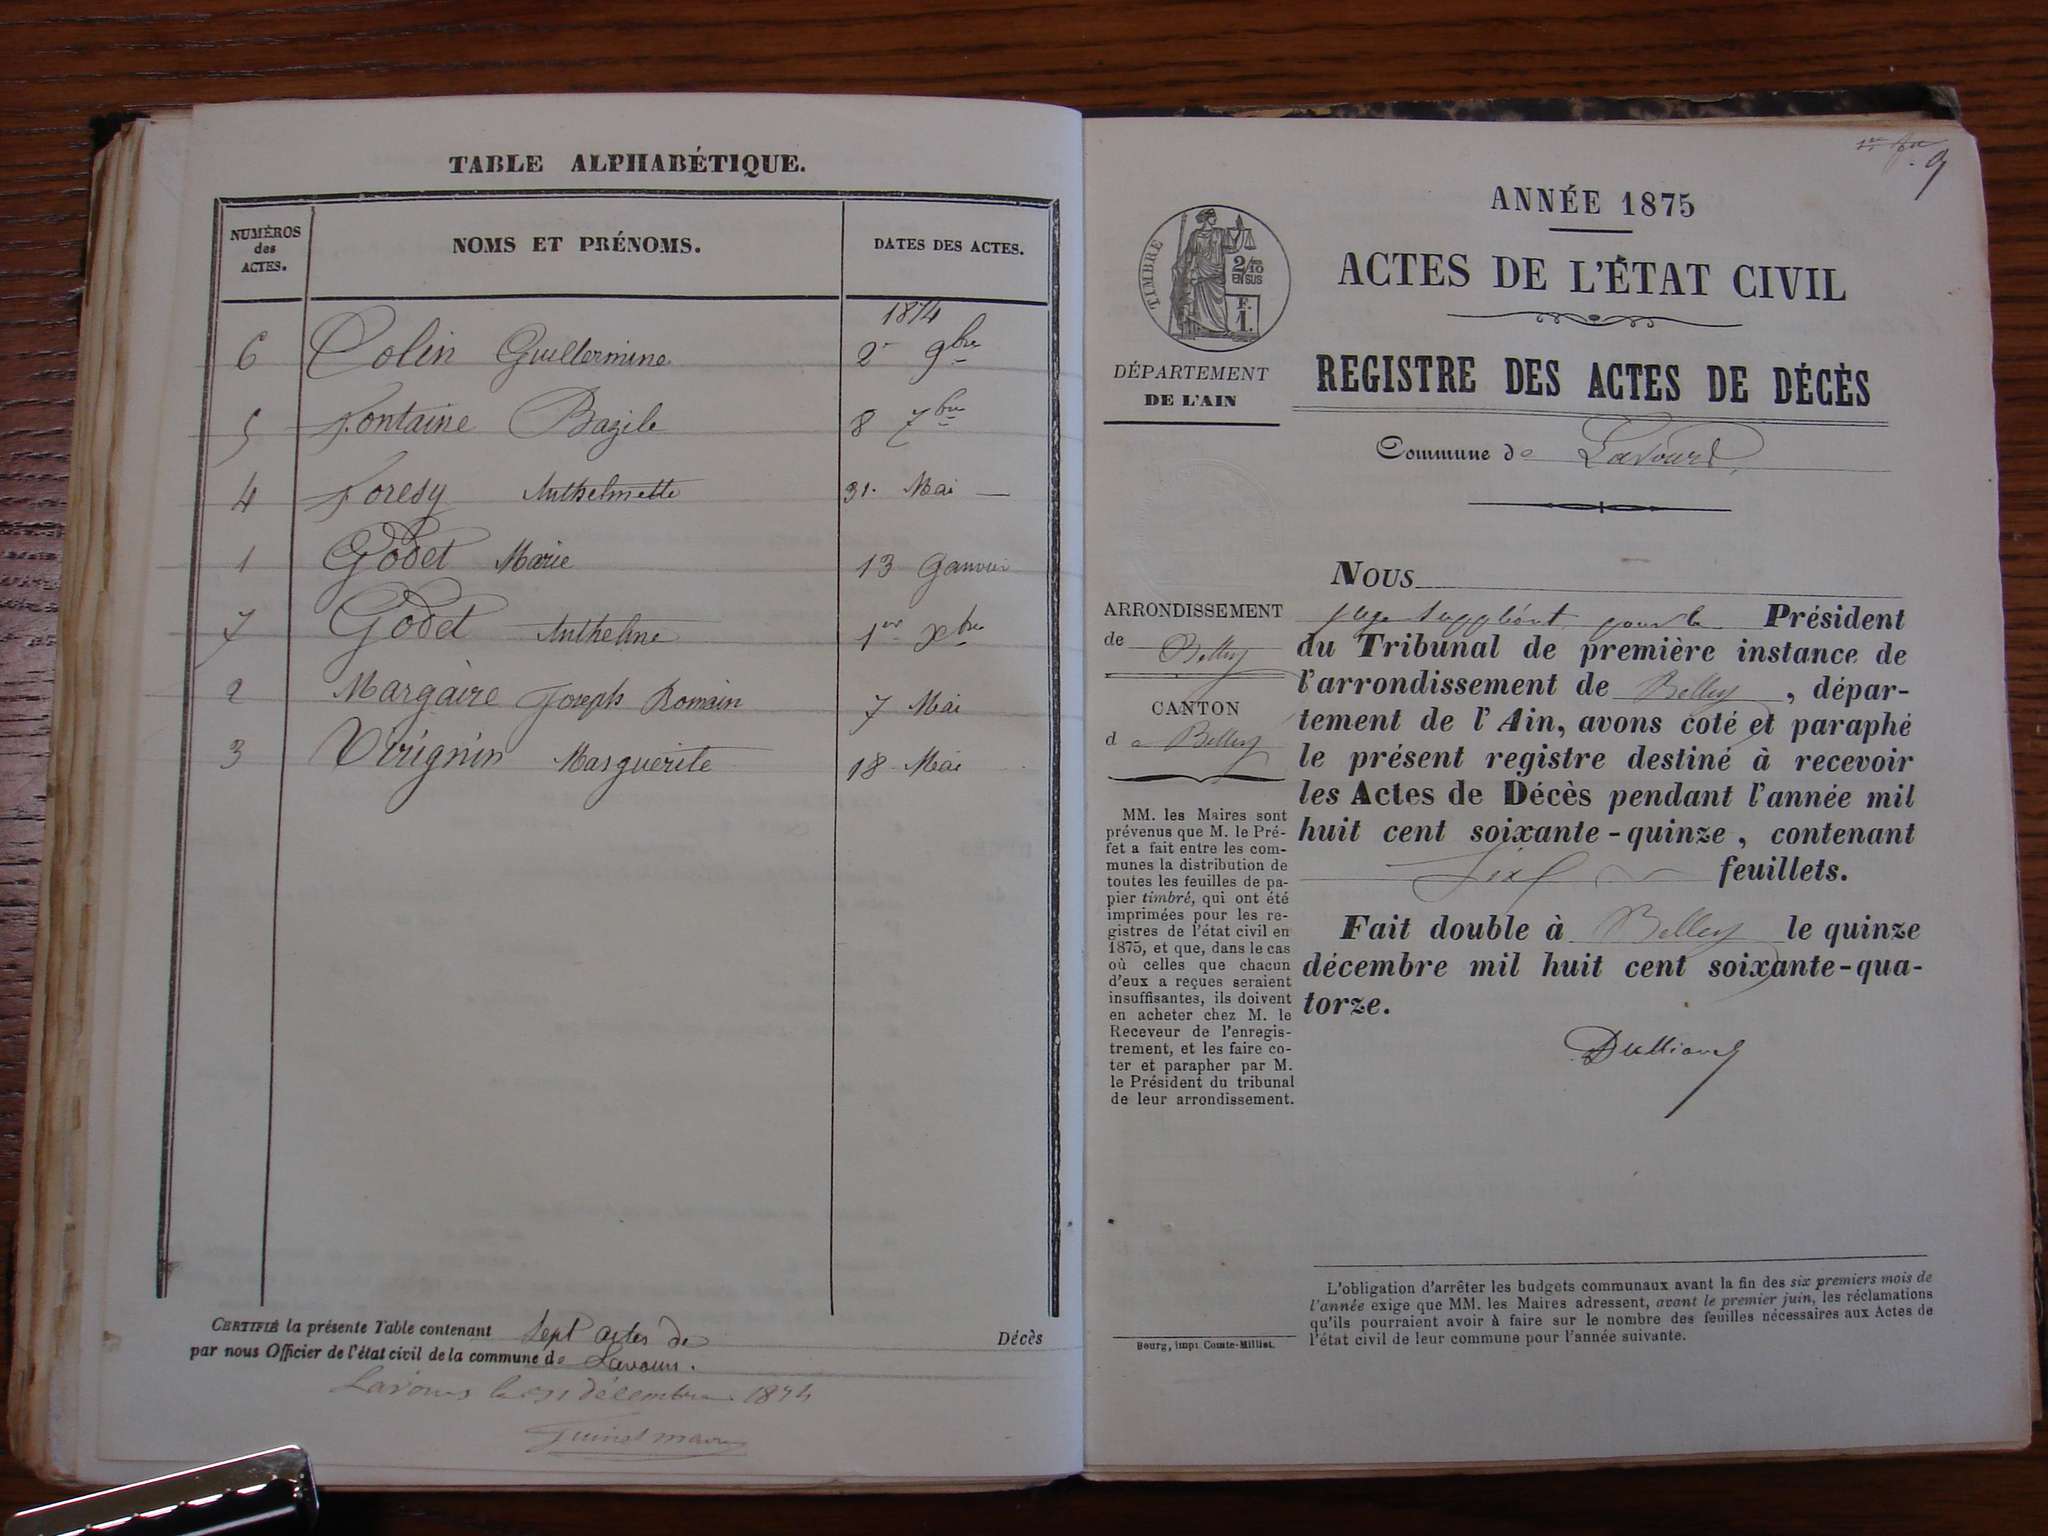 TABLE ALPHABÉTIQUE.
NUMÉROS
des
ACTES.
NOMS ET PRÉNOMS.
DATES DES ACTES.
1874
6 Colin Guillermine 2 9bre
5 Fontaine Bazile 8 7bre
4 Foresy Anthelmette 31. Mai —
1 Godet Marie 13 Janvier
7 Godet Antheline 1er Xbre
2 Margaire Joseph Romain 7 Mai
3 Virignin Marguerite 18 Mai
CERTIFIÉ la présente Table contenant sept actes de Décès
par nous Officier de l'état civil de la commune de Lavours.
Lavours le 31 décembre 1874
ANNÉE 1875
ACTES DE L'ÉTAT CIVIL
REGISTRE DES ACTES DE DÉCÈS
Commune de Lavours
TIMBRE
2/10
EN SUS
F.
1.
DÉPARTEMENT
DE L'AIN
ARRONDISSEMENT
de Belley
CANTON
de Belley
MM. les Maires sont
prévenus que M. le Pré-
fet a fait entre les com-
munes la distribution de
toutes les feuilles de pa-
pier timbré, qui ont été
imprimées pour les re-
gistres de l'état civil en
1875, et que, dans le cas
où celles que chacun
d'eux a reçues seraient
insuffisantes, ils doivent
en acheter chez M. le
Receveur de l'enregis-
trement, et les faire co-
ter et parapher par M.
le Président du tribunal
de leur arrondissement.
Bourg, imp. Comte-Milliet.
NOUS
juge suppléant pour le Président
du Tribunal de première instance de
l'arrondissement de Belley, dépar-
tement de l'Ain, avons coté et paraphé
le présent registre destiné à recevoir
les Actes de Décès pendant l'année mil
huit cent soixante-quinze, contenant
Six feuillets.
Fait double à Belley le quinze
décembre mil huit cent soixante-qua-
torze.
L'obligation d'arrêter les budgets communaux avant la fin des six premiers mois de
l'année exige que MM. les Maires adressent, avant le premier juin, les réclamations
qu'ils pourraient avoir à faire sur le nombre des feuilles nécessaires aux Actes de
l'état civil de leur commune pour l'année suivante.